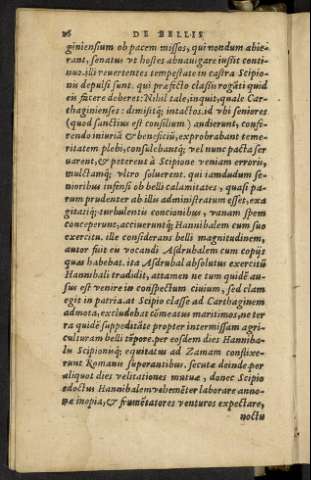 26 DE BELLIS
giniensium ob pacem missos, qui nondum abie-
rant, senatus vt hostes abnauigare iussit conti-
nuo. illi reuertentes tempestate in castra Scipio-
nis depulsi sunt. qui præfecto classis rogāti quid
eis facere deberet: Nihil tale, inquit, quale Car-
thaginienses: dimisitq; intactos. id vbi seniores
(quod sanctius est consilium) audierunt, confe-
rendo iniuriā & beneficiū, exprobrabant teme-
ritatem plebi, consulebantq; vel nunc pacta ser
uarent, & peterent à Scipione veniam erroris,
mulctamq; vltro soluerent. qui iamdudum se-
nioribus infensi ob belli calamitates, quasi pa-
rum prudenter ab illis administratum esset, exa
gitatiq; turbulentis concionibus, vanam spem
conceperunt, acciueruntq; Hannibalem cum suo
exercitu. ille considerans belli magnitudinem,
autor fuit eis vocandi Asdrubalem cum copijs
quas habebat. ita Asdrubal absolutus exercitū
Hannibali tradidit, attamen ne tum quidē au-
sus est venire in conspectum ciuium, sed clam
egit in patria. at Scipio classe ad Carthaginem
admota, excludebat cōmeatus maritimos, ne ter
ra quidē suppeditāte propter intermissam agri-
culturam belli tēpore. per eosdem dies Hanniba-
lis Scipionisq; equitatus ad Zamam conflixe-
runt Romanis superantibus. secutæ deinde per
aliquot dies velitationes mutuæ, donec Scipio
edoctus Hannibalem vehemēter laborare anno-
næ inopia, & frumētatores venturos expectare,
noctu